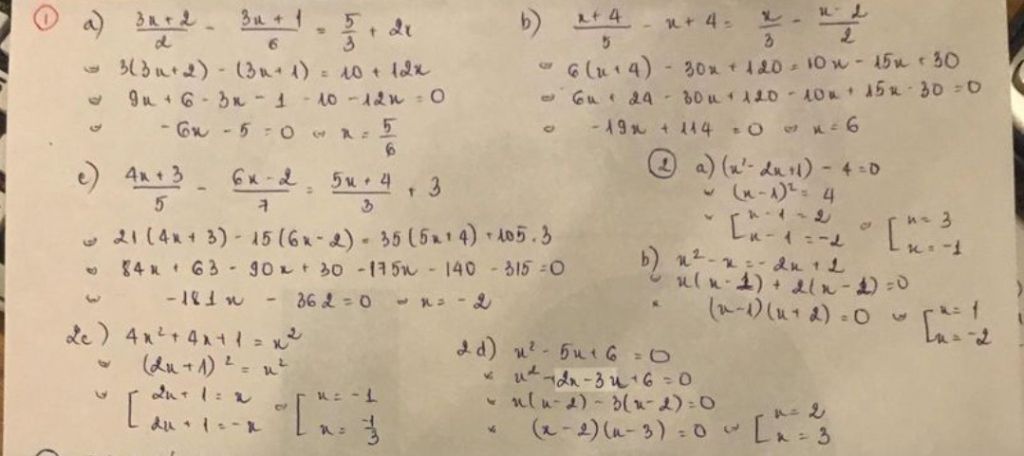 ① a) (3x+2)/2 - (3x+1)/6 = 5/3 + 2x
⇔ 3(3x+2) - (3x+1) = 10 + 12x
⇔ 9x + 6 - 3x - 1 - 10 - 12x = 0
⇔ -6x - 5 = 0 ⇔ x = 5/6
b) (x+4)/5 - x + 4 = x/3 - (x-2)/2
⇔ 6(x+4) - 30x + 120 = 10x - 15x + 30
⇔ 6x + 24 - 30x + 120 - 10x + 15x - 30 = 0
⇔ -19x + 114 = 0 ⇔ x = 6
c) (4x+3)/5 - (6x-2)/7 = (5x+4)/3 + 3
⇔ 21(4x+3) - 15(6x-2) = 35(5x+4) + 105.3
⇔ 84x + 63 - 90x + 30 - 175x - 140 - 315 = 0
⇔ -181x - 362 = 0 ⇔ x = -2
② a) (x² - 2x+1) - 4 = 0
⇔ (x-1)² = 4
⇔ [ x - 1 = 2 ⇔ [ x = 3
x - 1 = -2 x = -1
b) x² - x = -2x + 2
⇔ x(x-1) + 2(x-1) = 0
⇔ (x-1)(x+2) = 0 ⇔ [ x = 1
x = -2
2c) 4x² + 4x + 1 = x²
⇔ (2x+1)² = x²
⇔ [ 2x + 1 = x ⇔ [ x = -1
2x + 1 = -x x = -1/3
2d) x² - 5x + 6 = 0
⇔ x² - 2x - 3x + 6 = 0
⇔ x(x-2) - 3(x-2) = 0
⇔ (x-2)(x-3) = 0 ⇔ [ x = 2
x = 3